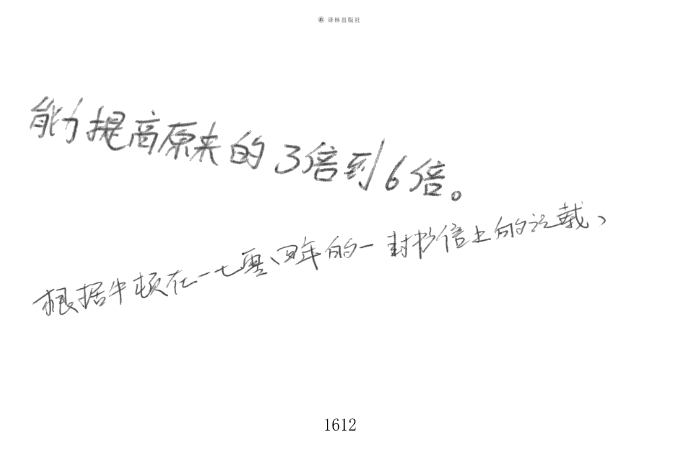 译林出版社
能力提高原来的3倍到6倍。
根据牛顿在一七零四年的一封书信上的记载、
1612